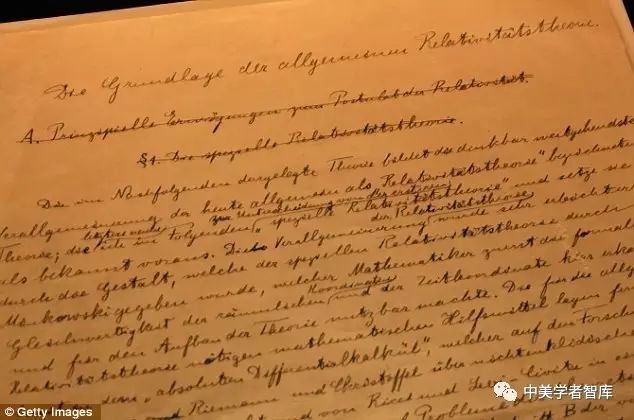 Die Grundlage der allgemeinen Relativitätstheorie.
A. Prinzipielle Erwägungen zum Postulat der Relativität.
§1. Die spezielle Relativitätstheorie.
Die im Nachfolgenden dargelegte Theorie bildet die denkbar weitgehendste
Verallgemeinerung der heute allgemein als „Relativitätstheorie" bezeichneten
letztere nenne zur Unterscheidung von der ersteren
Theorie; die ich im Folgenden „spezielle Relativitätstheorie" und setze sie
der Relativitätstheorie
als bekannt voraus. Die Verallgemeinerung wurde sehr erleichtert
durch die Gestalt, welche der speziellen Relativitätstheorie durch
Minkowski gegeben wurde, welcher Mathematiker zuerst die formale
Koordinaten
Gleichwertigkeit der räumlichen und der Zeitkoordinate klar erkan
und für den Aufbau der Theorie nutzbar machte. Die für die allge
Relativitätstheorie nötigen mathematischen Hilfsmittel lagen fer
dem „absoluten Differentialkalkül", welcher auf den Forsch
Riemann und Christoffel über nichteuklidische
und von Ricci und Levi-Civita in ein
Probleme
© Getty Images
中美学者智库